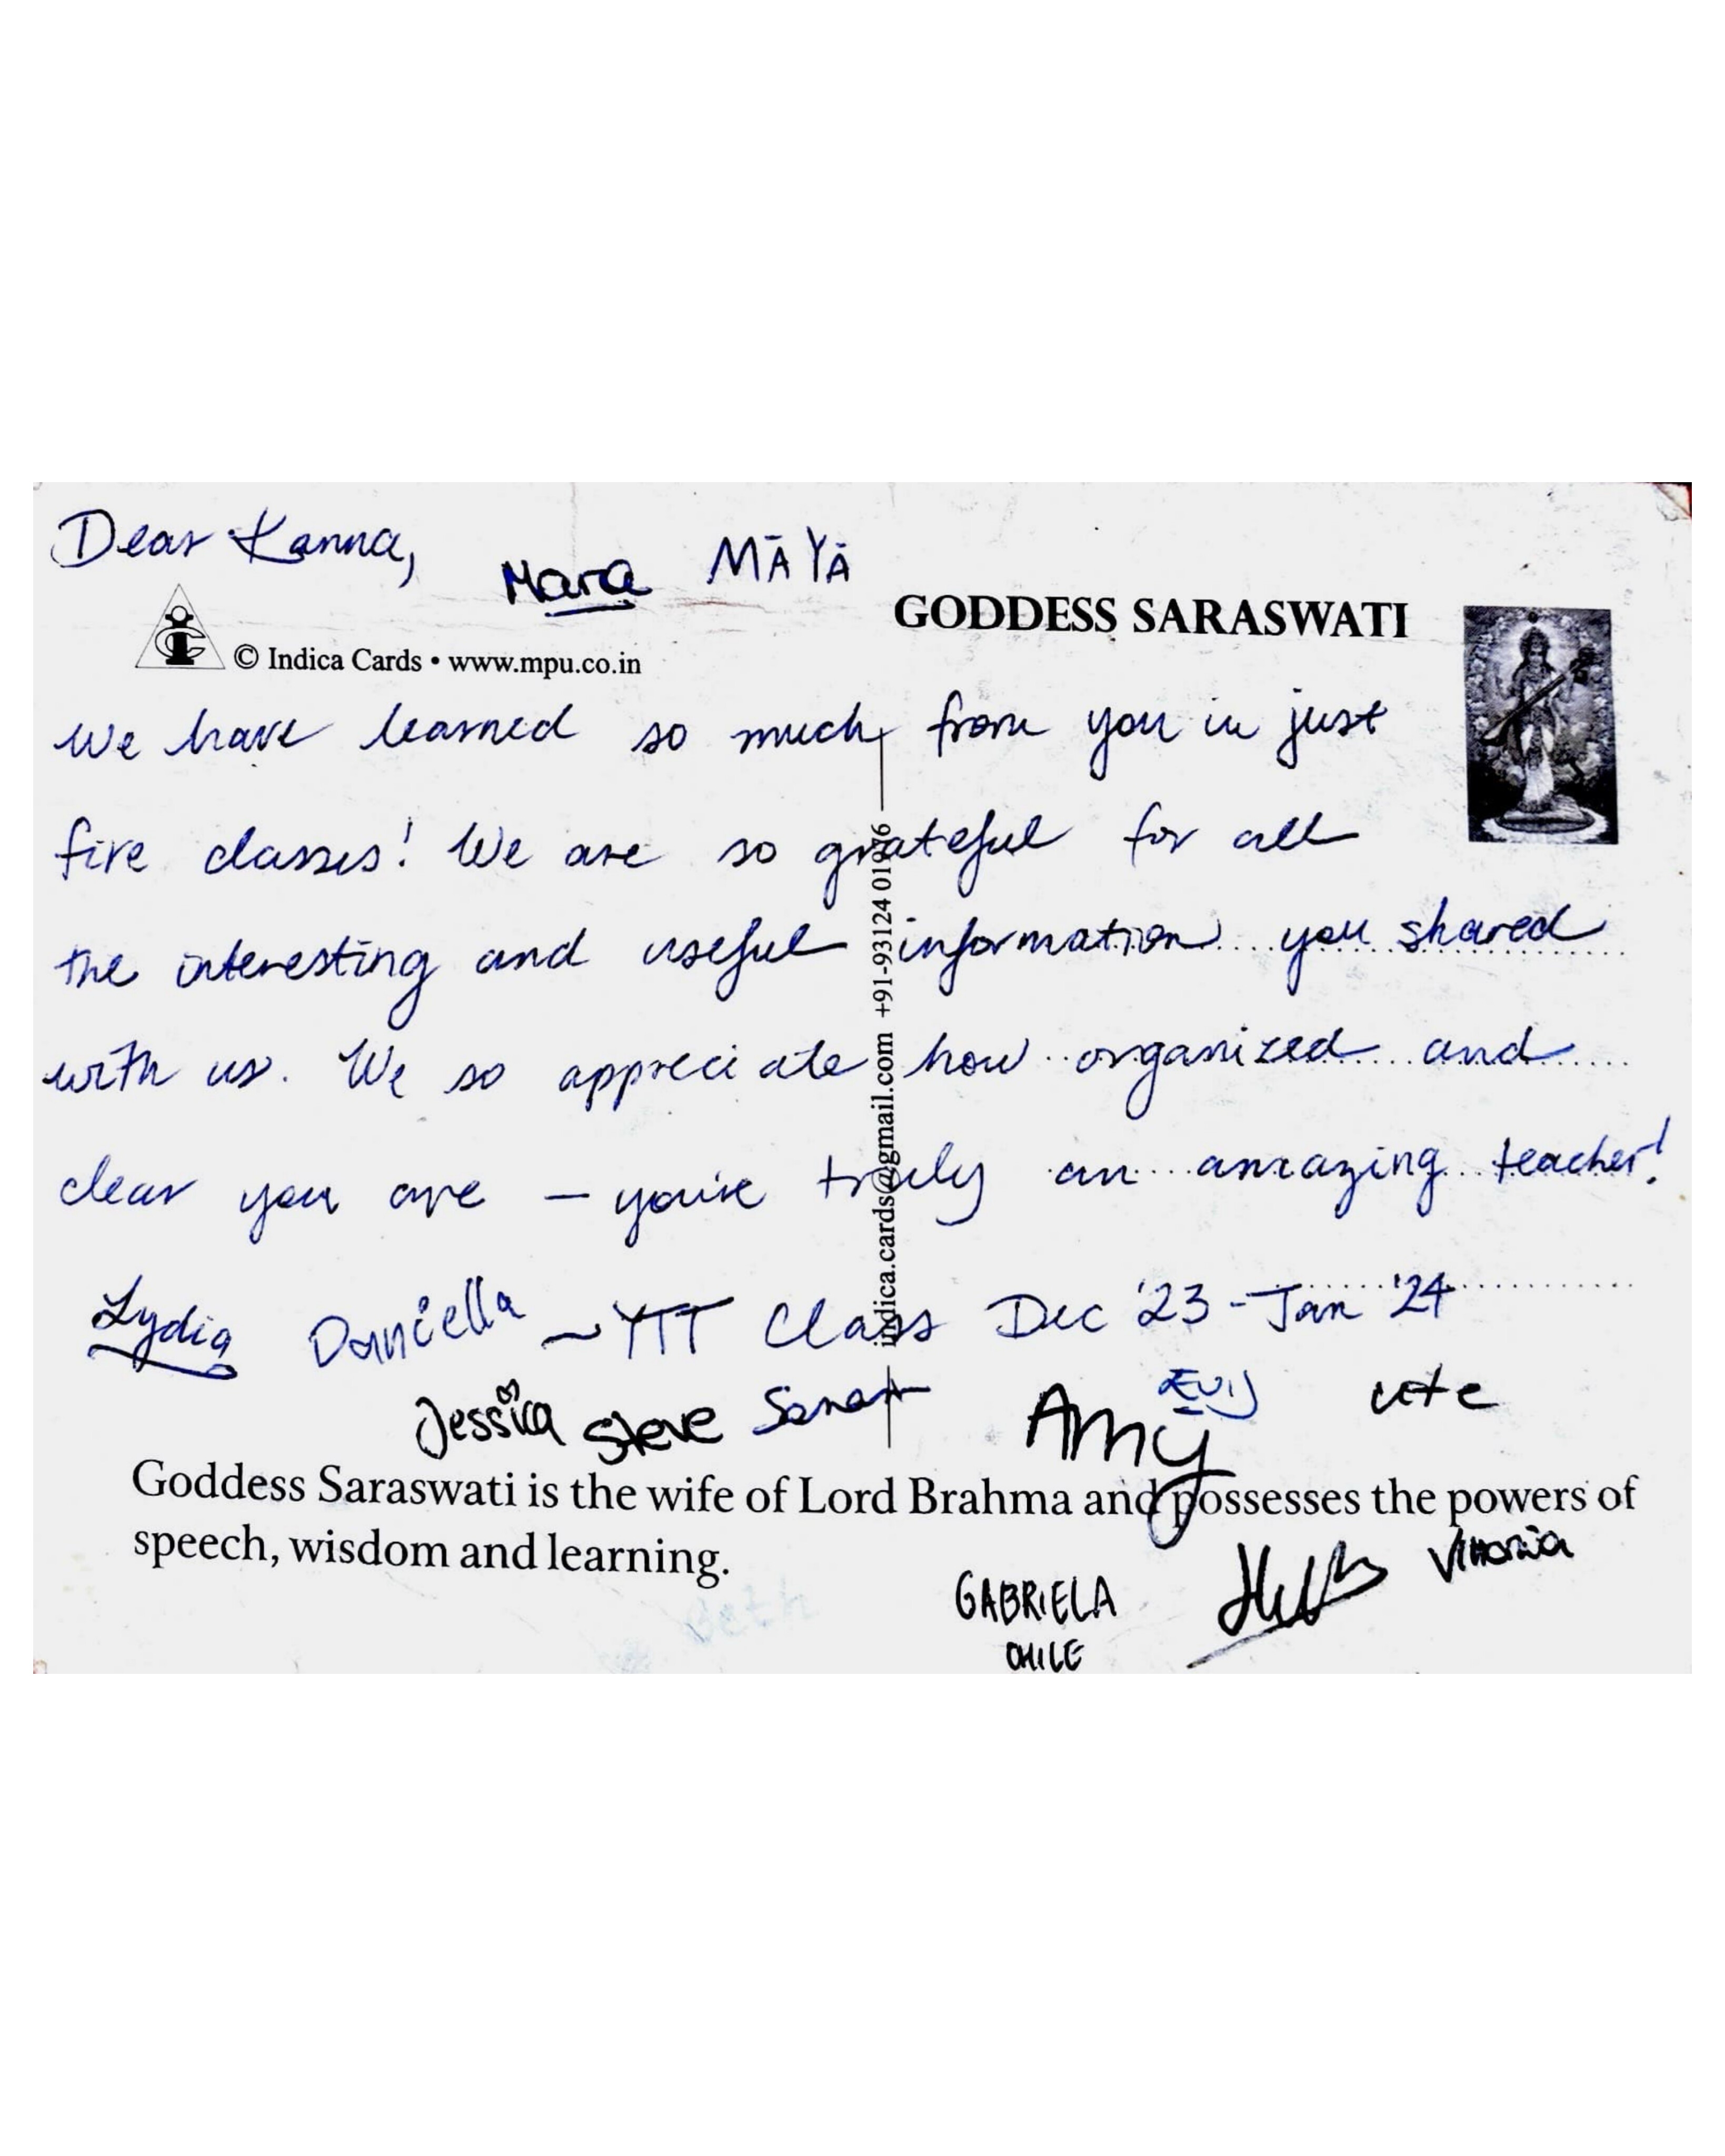 Dear Kanna,
Mara MĀYĀ
GODDESS SARASWATI
© Indica Cards • www.mpu.co.in
We have learned so much from you in just
five classes! We are so grateful for all
the interesting and useful information you shared
with us. We so appreciate how organized and
clear you are – you're truly an amazing teacher!
indica.cards@gmail.com +91-93124 01976
Lydia Daniella ~ YTT Class Dec '23 - Jan '24
Jessica Steve Amy ute
Goddess Saraswati is the wife of Lord Brahma and possesses the powers of
speech, wisdom and learning.
Vittoria
GABRIELA
CHILE
Beth